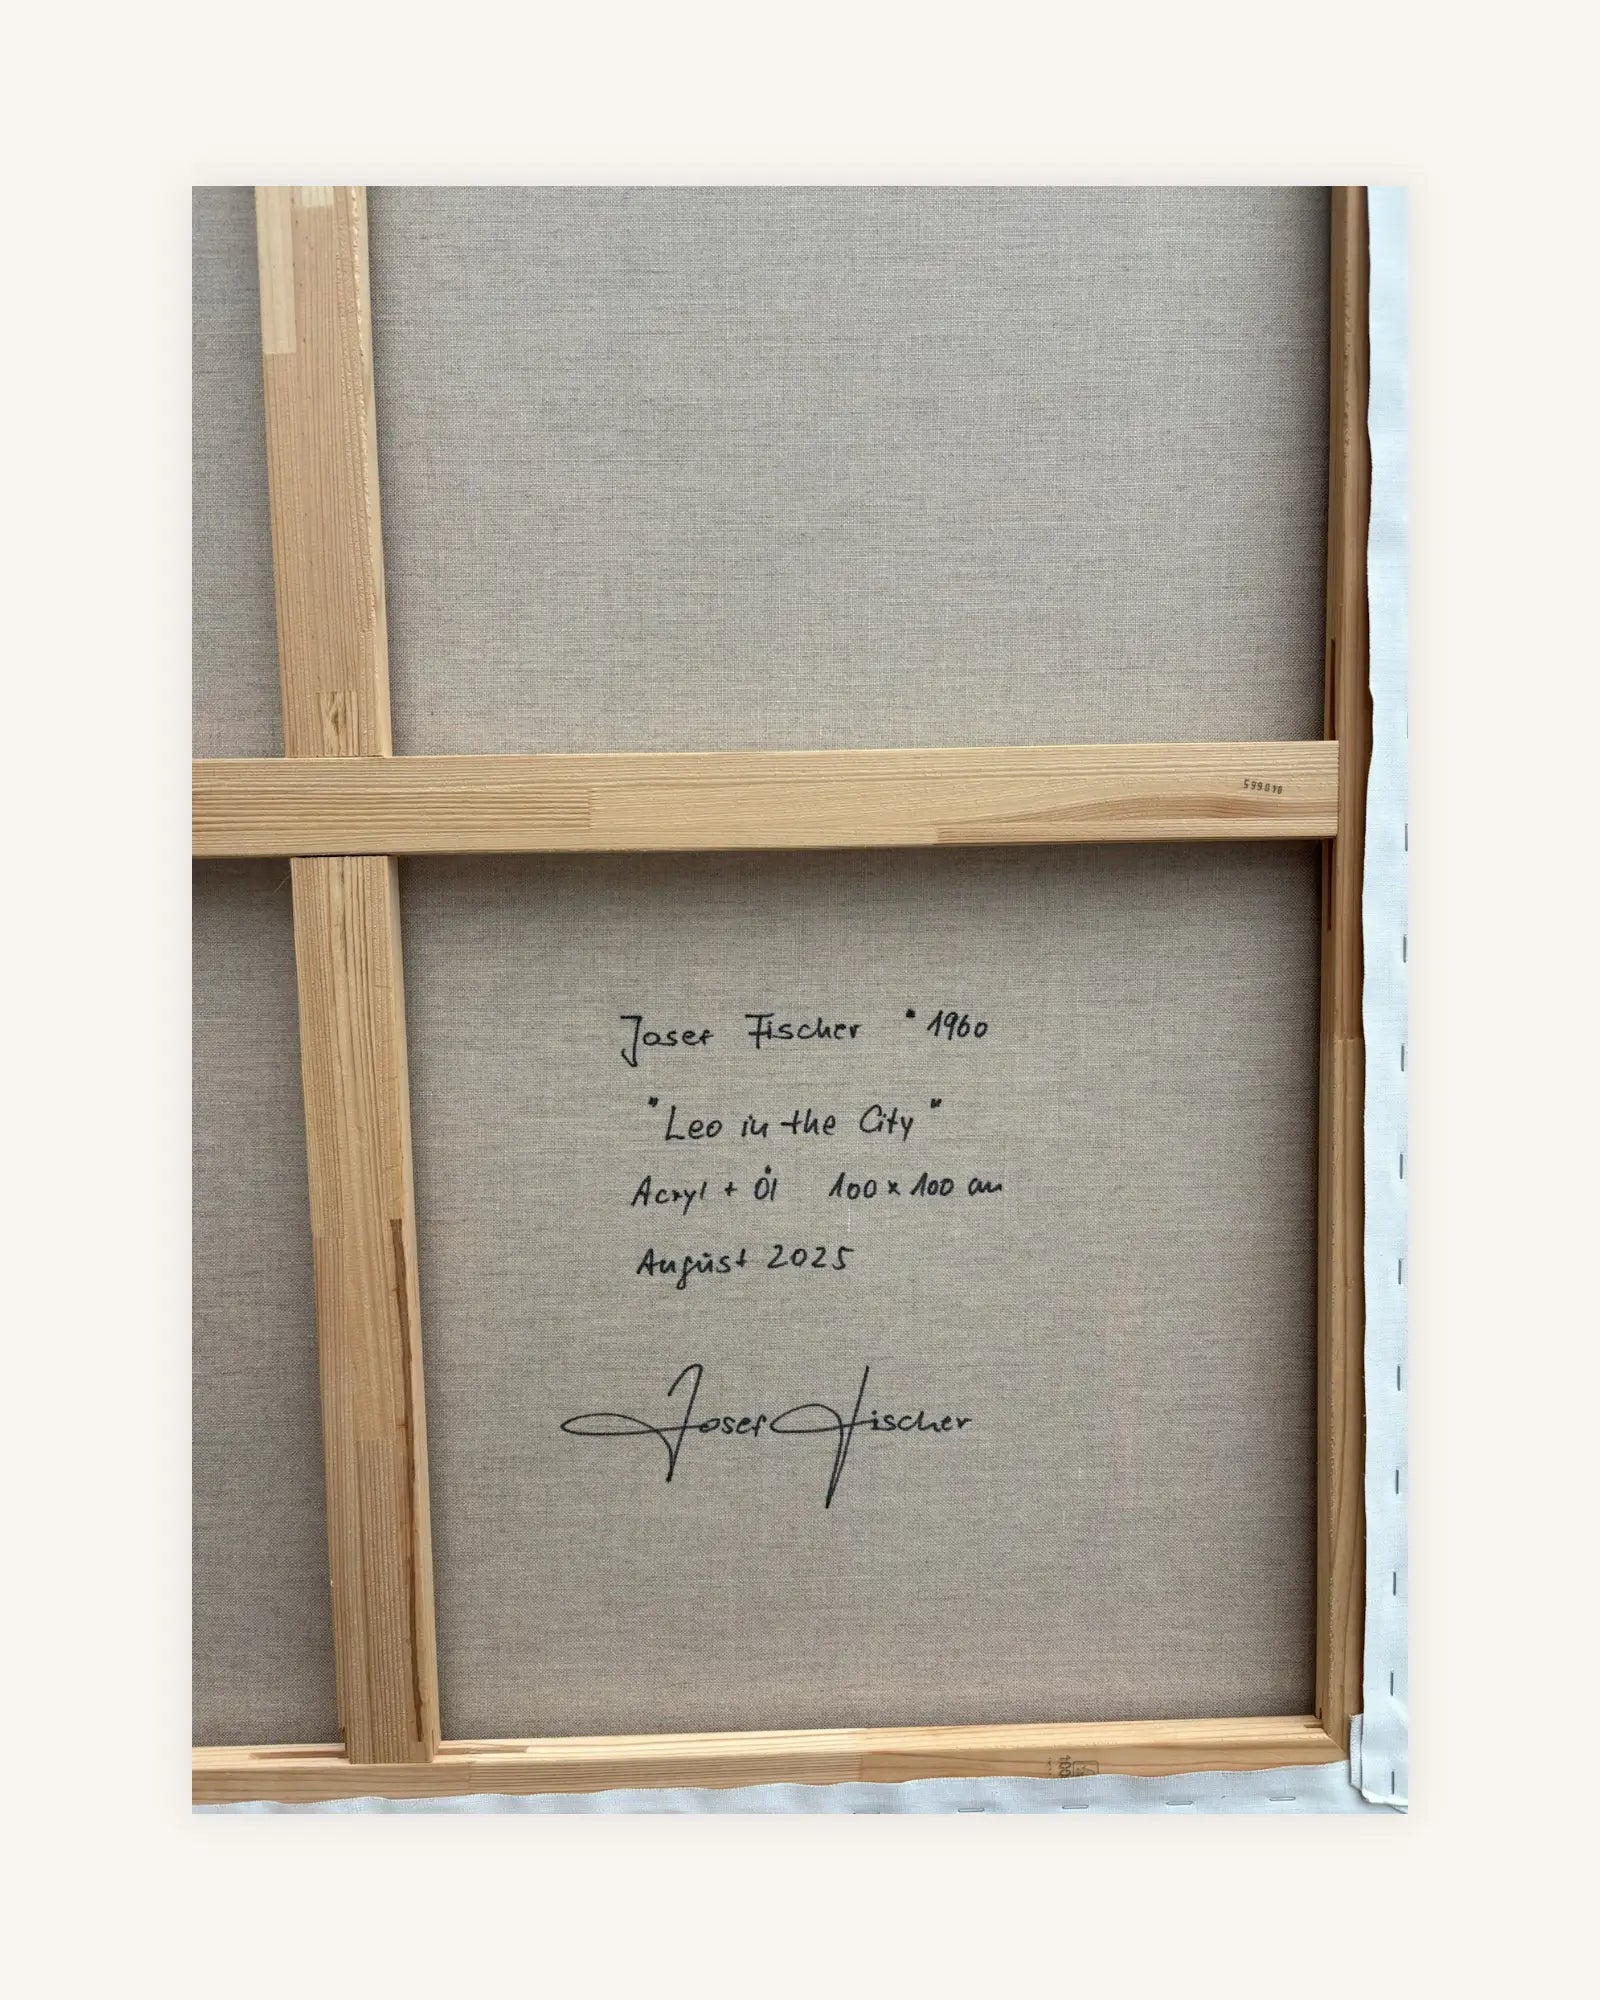 599010
Josef Fischer * 1960
"Leo in the City"
Acryl + Öl 100 x 100 cm
August 2025
Josef Fischer